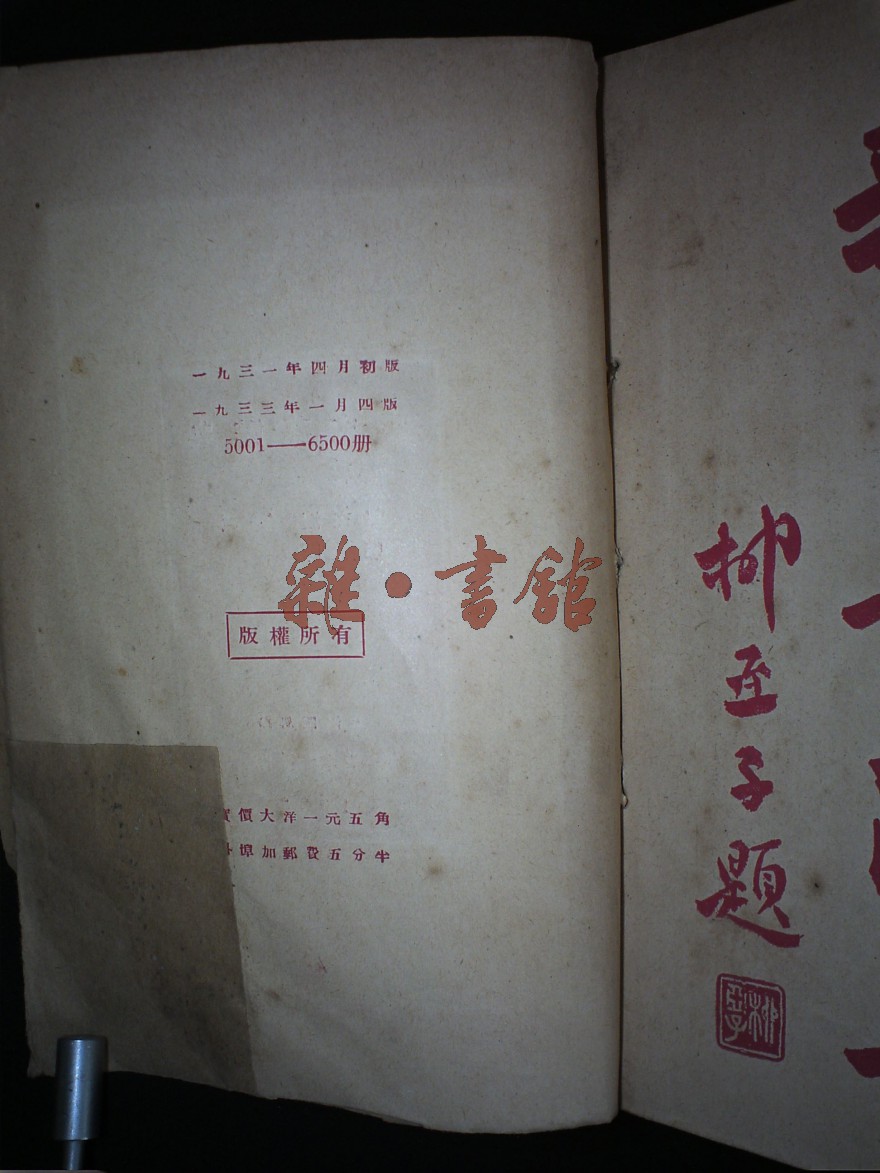 一九三一年四月初版
一九三三年一月四版
5001——6500册
雜·書館
版權所有
實價大洋一元五角
外埠加郵費五分半
柳亞子題